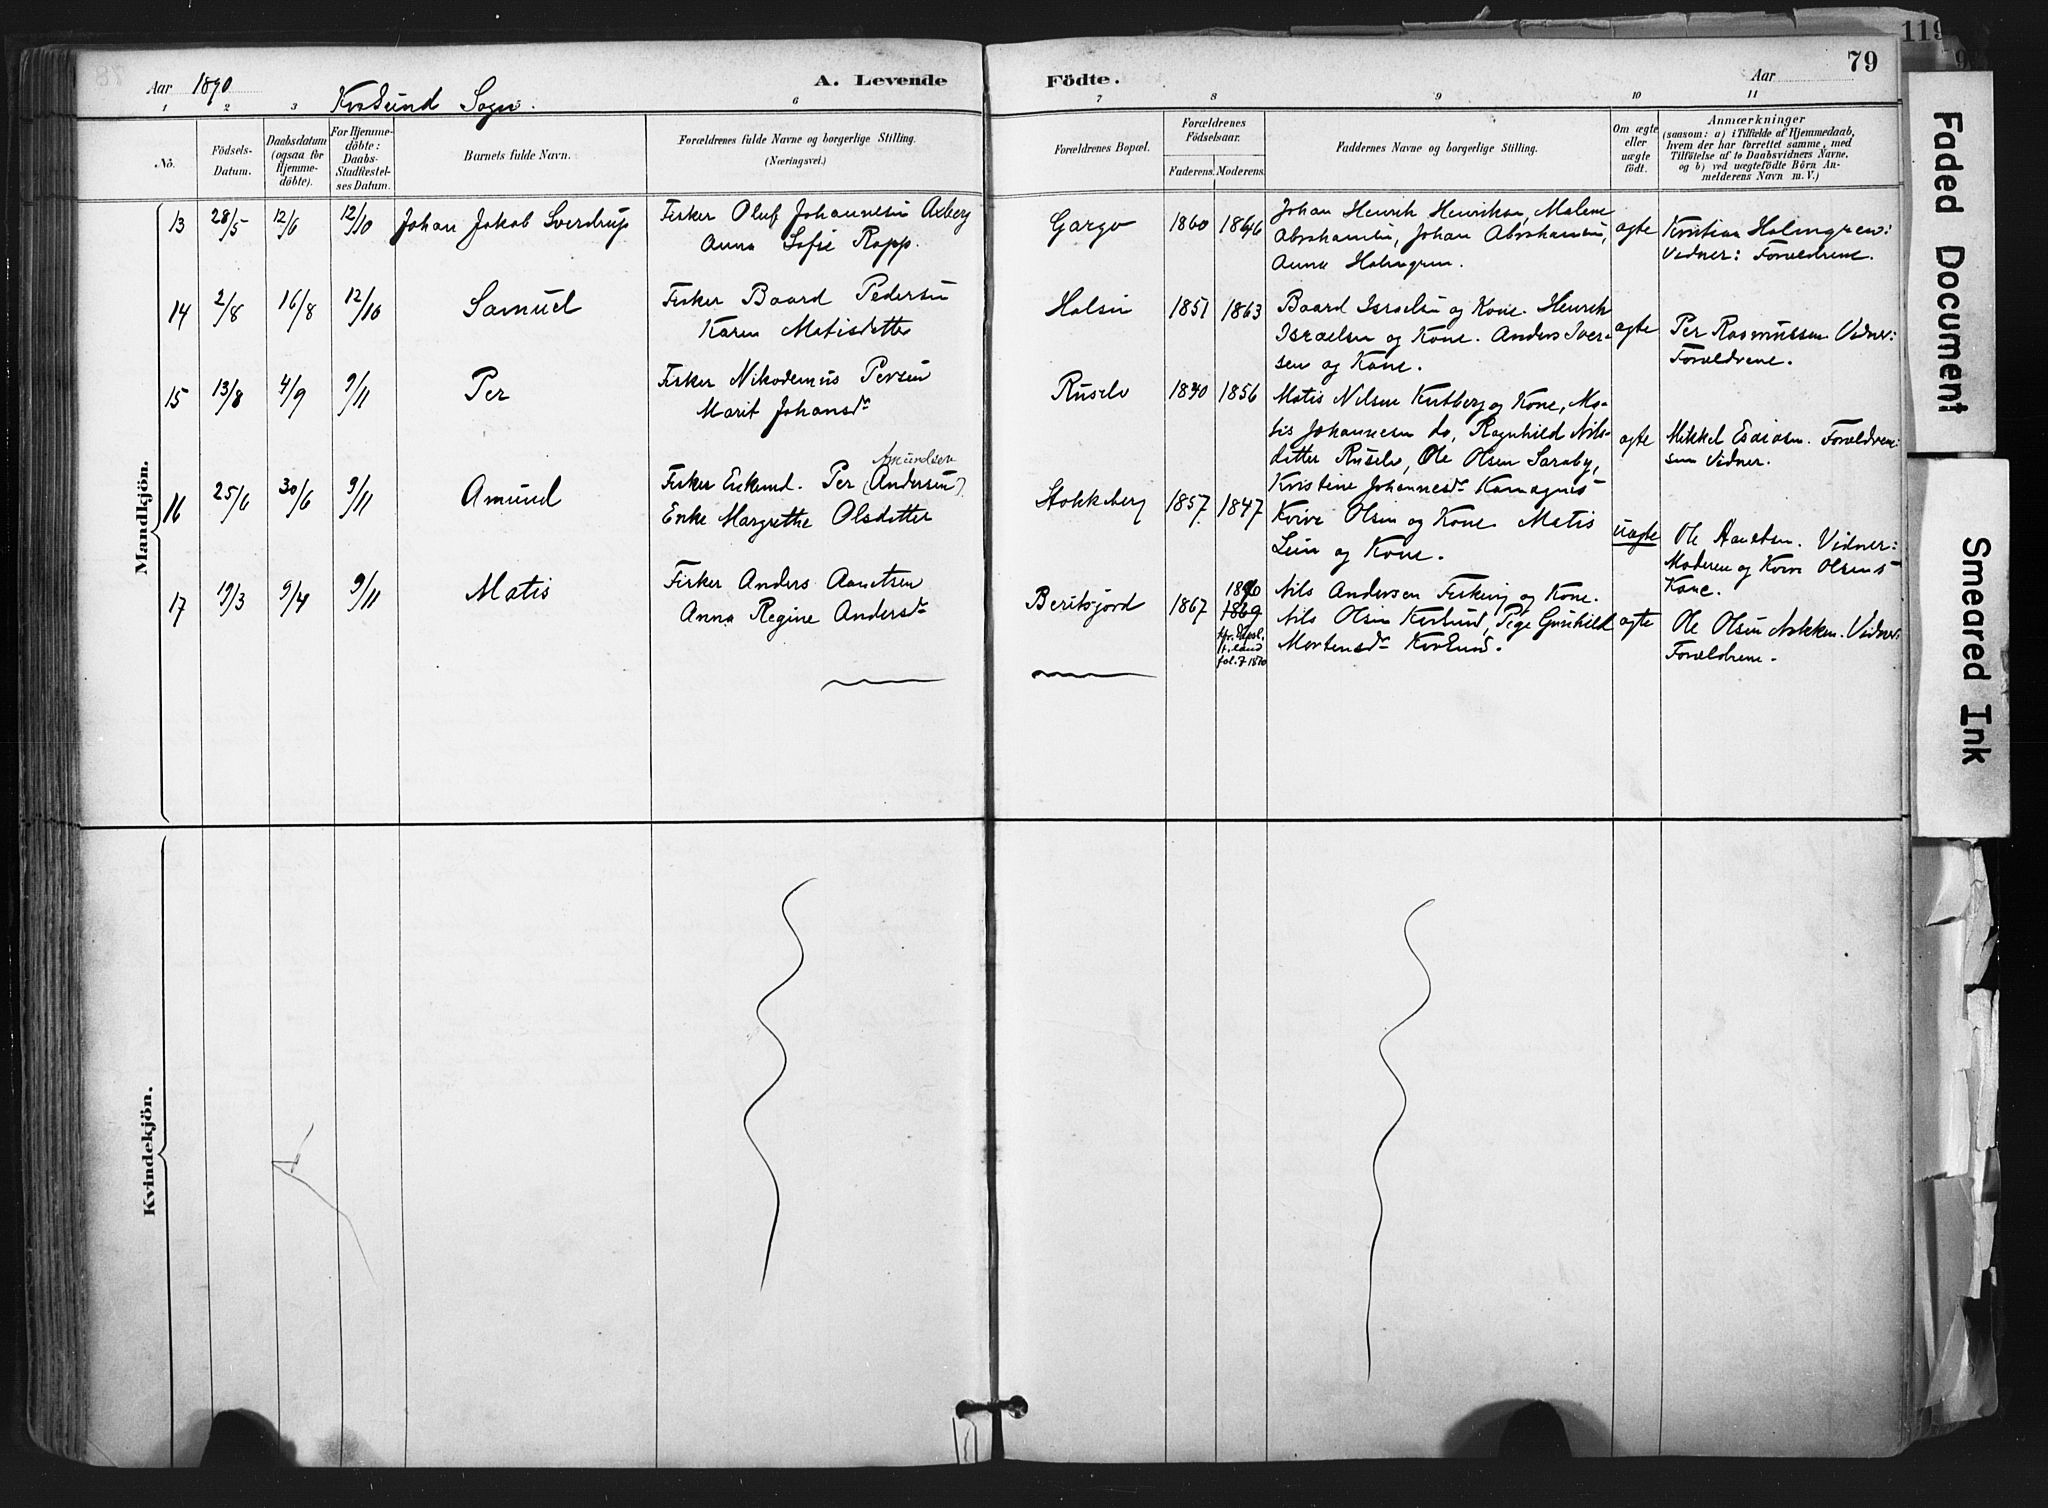 Aar 1890
A. Levende Födte.
Aar
79
119
Kvalsund Sogn.
1 2 3 6 7 8 9 10 11
No.
Födsels-Datum.
Daabsdatum (ogsaa for Hjemmedöbte).
For Hjemmedöbte: Daabs-Stadfæstelses Datum.
Barnets fulde Navn.
Forældrenes fulde Navne og borgerlige Stilling.
(Næringsvei.)
Forældrenes Bopæl.
Forældrenes Födselsaar.
Faderens. Moderens.
Faddernes Navne og borgerlige Stilling.
Om ægte eller uægte födt.
Anmærkninger
(saasom: a) i Tilfælde af Hjemmedaab,
hvem der har forrettet samme, med
Tilföielse af to Daabsvidners Navne.
og b) ved uægtefödte Börn Anmelderens Navn m. V.)
Mandkjön.
13 28/5 12/6 12/10 Johan Jakob Sverdrup
Fisker Oluf Johannesen Axberg
Anna Sofie Rapp.
Gargo 1860 1866
Johan Henrik Henriksen, Malene
Abrahamsen, Johan Abrahamsen,
Anna Holmgren.
ægte
Kristian Holmgren:
Vidner: Forældrene.
14 2/8 16/8 12/10 Samuel
Fisker Baard Pedersen
Karen Matisdatter
Halsen 1851 1863
Baard Israelsen og Kone. Henrik
Israelsen og Kone. Anders Iversen og Kone.
ægte
Per Rasmussen. Vidner:
Forældrene.
15 13/8 4/9 9/11 Per
Fisker Nikodemus Persen
Marit Johansdr
Ruselv 1840 1856
Matis Nilsen Kutberg og Kone, Matis Johannesen do, Ragnhild Nilsdatter Ruselv, Ole Olsen Saraby,
Kristine Johannesdr Kamagnes
ægte
Mikkel Esaiasen. Forældrene
som Vidner.
16 25/6 30/6 9/11 Amund
Amundsen
Fisker Enkemd. Per (Andersen)
Enke Margrethe Olsdatter
Stokkeberg 1857. 1847
Kvive Olsen og Kone Matis
og Kone.
uægte
Ole Vidner:
Moderen og Kvive Olsens
Kone.
17 19/3 9/4 9/11 Matis
Fisker Anders Aanetsen
Anna Regine Andersdr
Beritsjord 1867
1870
1869
fol. 7 1870
Nils Andersen og Kone.
Nils Olsen Kvalsund, Pige Gunhild
Mortensdr Kvalsund.
ægte
Ole Olsen Nakken. Vidner:
Forældrene.
Kvindekjön.
Faded Document
Smeared Ink